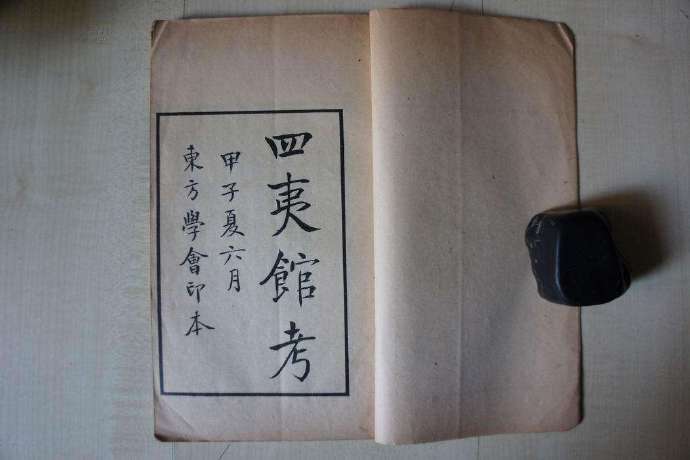 四夷館考
甲子夏六月
東方學會印本